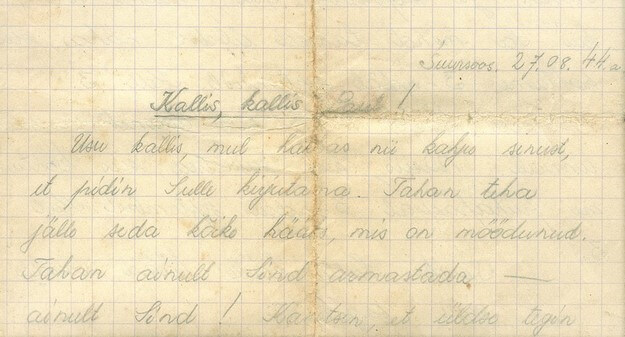 Suursoos, 27.08.44.a
Kallis, kallis !
Usu kallis, mul hakkas nii kahju sinust,
et pidin Sulle kirjutama. Tahan teha
jälle seda kõike hääks, mis on möödunud.
Tahan ainult Sind armastada —
ainult Sind ! Kartsin, et üldse tegin